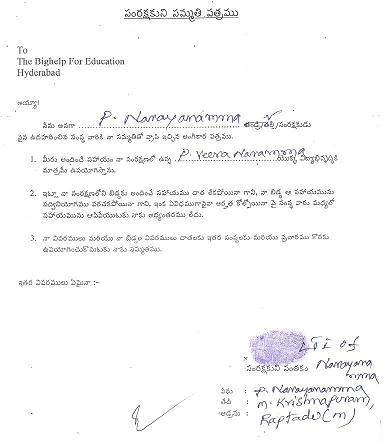 సంరక్షకుని సమ్మతి పత్రము
To
The Bighelp For Education
Hyderabad
అయ్యా!
నేను అనగా P. Narayanamma తండ్రి/తల్లి/సంరక్షకుడు
పైన ఉదహరించిన సంస్థ వారికి నా సమ్మతితో వ్రాసి ఇచ్చిన అంగీకార పత్రము.
1. మీరు అందించే సహాయం నా సంరక్షణలో ఉన్న P. Veera Naramma యొక్క విద్యాభివృద్ధికి
మాత్రమే ఉపయోగిస్తాను.
2. ఇట్లు నా సంరక్షణలోని బిడ్డకు అందించే సహాయము చాత లేకపోయినా గాని, నా బిడ్డ ఆ సహాయమును
సద్వినియోగము పరచకపోయినా గాని, ఇంక ఏవిధముగానైనా అర్హత కోల్పోయినా పై సంస్థ వారు మధ్యలో
సహాయమును ఆపివేయుటకు నాకు అభ్యంతరము లేదు.
3. నా వివరములు మరియు నా బిడ్డల వివరములు దాతలకు ఇతర సంస్థలకు మరియు ప్రచారము కొరకు
ఉపయోగించుకొనుటకు నాకు సమ్మతము.
ఇతర వివరములు ఏమైనా :-
LTI of
సంరక్షకుని సంతకం Narayana
mma
పేరు : P. Narayanamma
తేదీ : M. Krishnapuram,
అడ్రసు : Raptadu (m)